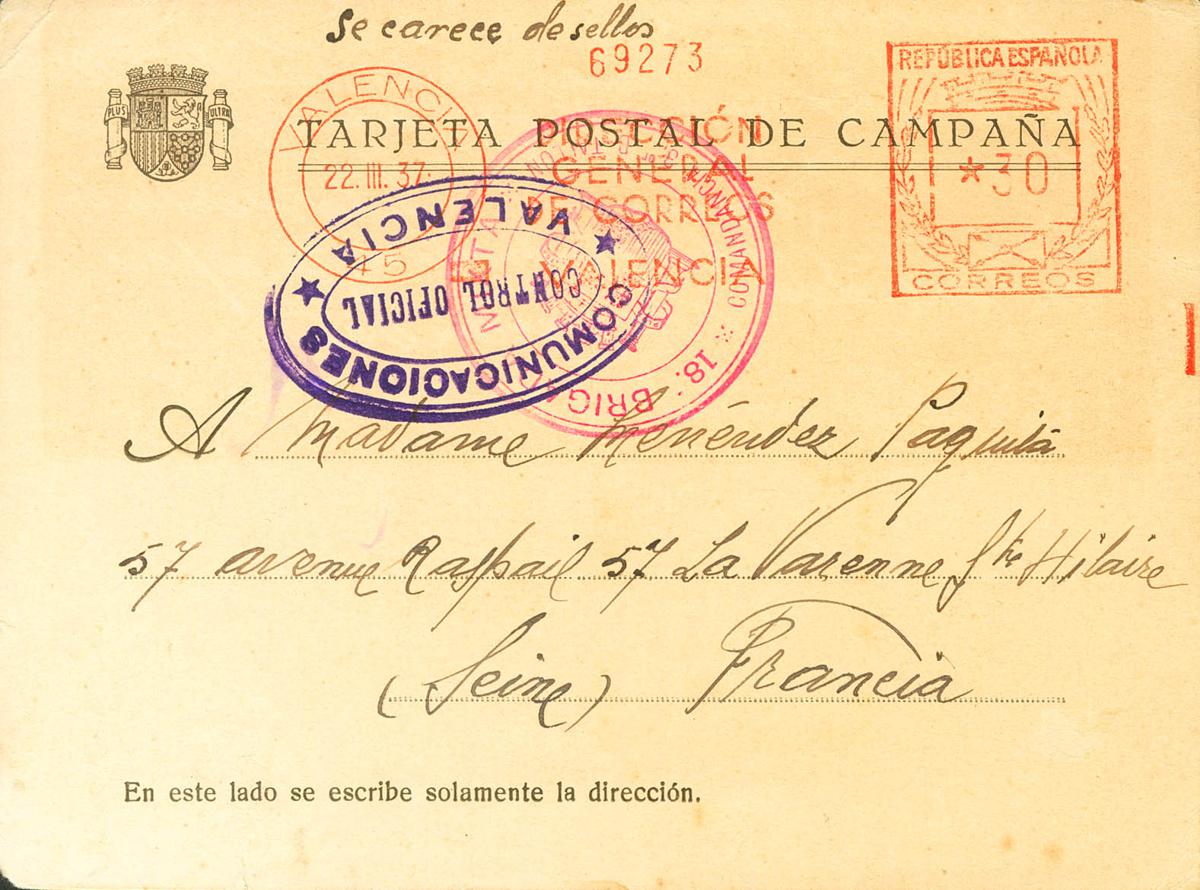 Se carece de sellos
69273
REPÚBLICA ESPAÑOLA
PLUS ULTRA
VALENCIA
TARJETA POSTAL DE CAMPAÑA
22.III.37
GENERAL
*30
DE CORREOS
VALENCIA
15
CORREOS
COMUNICACIONES
VALENCIA
CONTROL OFICIAL
COMANDANCIA
18. BRIGADA
A Madame Menéndez Paquita
57 avenue Raspail 57 La Varenne Ste Hilaire
(Seine) Francia
En este lado se escribe solamente la dirección.